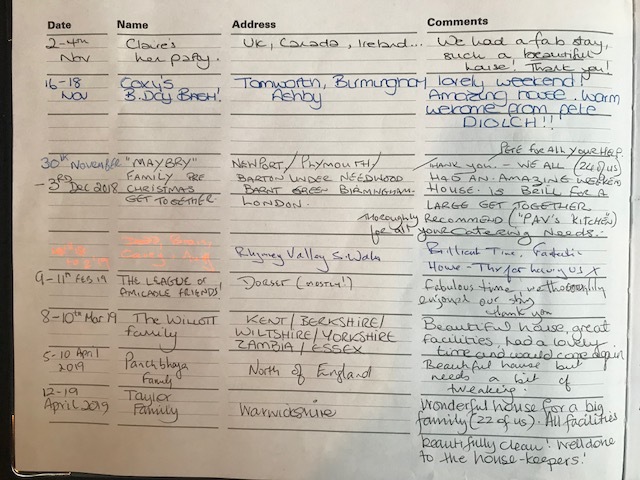 Date Name Address Comments
2-4th Claire's UK, Canada, Ireland... We had a fab stay,
Nov hen party. such a beautiful
house! Thank you!
16-18 Coxy's Tamworth, Birmingham lovely weekend!
Nov B.Day BASH! Ashby Amazing house. Warm
welcome from Pete
DIOLCH!!
PETE FOR ALL YOUR HELP.
30th November "MAYBRY" NEWPORT/PLYMOUTH/ THANK YOU - WE ALL (24 of us)
- 3RD Dec 2018 FAMILY PRE BARTON UNDER NEEDWOOD HAD AN AMAZING WEEKEND
CHRISTMAS BARNT GREEN BIRMINGHAM. HOUSE IS BRILL FOR A
GET TOGETHER. LONDON. LARGE GET TOGETHER
Thoroughly RECOMMEND ("PAV'S KITCHEN")
for all your Catering Needs.
Rhymney Valley S.Wales Brilliant Time, Fantastic
House - Thx for having us X
9-11th FEB 19 THE LEAGUE OF DORSET (mostly!) Fabulous time, we thoroughly
AMICABLE FRIENDS! enjoyed our stay
thank you
8-10th Mar 19 The Willott KENT/BERKSHIRE/ Beautiful house, great
family WILTSHIRE/YORKSHIRE facilities, had a lovely
ZAMBIA/ESSEX time and would come again
5-10 April Panchbhaya North of England Beautiful house but
2019 Family needs a bit of
tweaking.
12-19 Taylor Warwickshire Wonderful house for a big
April 2019 Family family (22 of us). All facilities
beautifully clean! Well done
to the house-keepers!